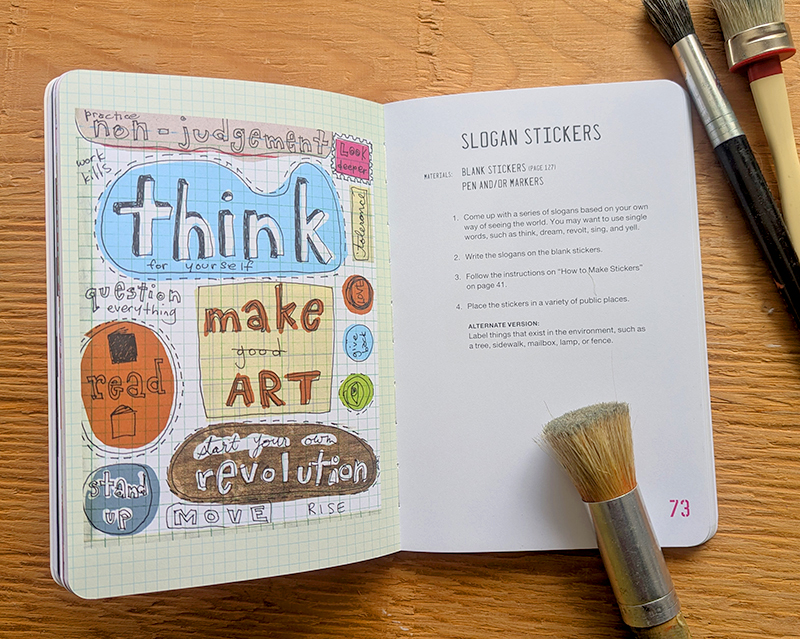 practice
non-judgement
work
kills
Look
deeper
think
for yourself
tolerance
question
everything
make
good
ART
LOVE
give
back
read
start your own
revolution
stand
up
MOVE
RISE
SLOGAN STICKERS
MATERIALS: BLANK STICKERS (PAGE 127)
PEN AND/OR MARKERS
1. Come up with a series of slogans based on your own
way of seeing the world. You may want to use single
words, such as think, dream, revolt, sing, and yell.
2. Write the slogans on the blank stickers.
3. Follow the instructions on “How to Make Stickers”
on page 41.
4. Place the stickers in a variety of public places.
ALTERNATE VERSION:
Label things that exist in the environment, such as
a tree, sidewalk, mailbox, lamp, or fence.
73